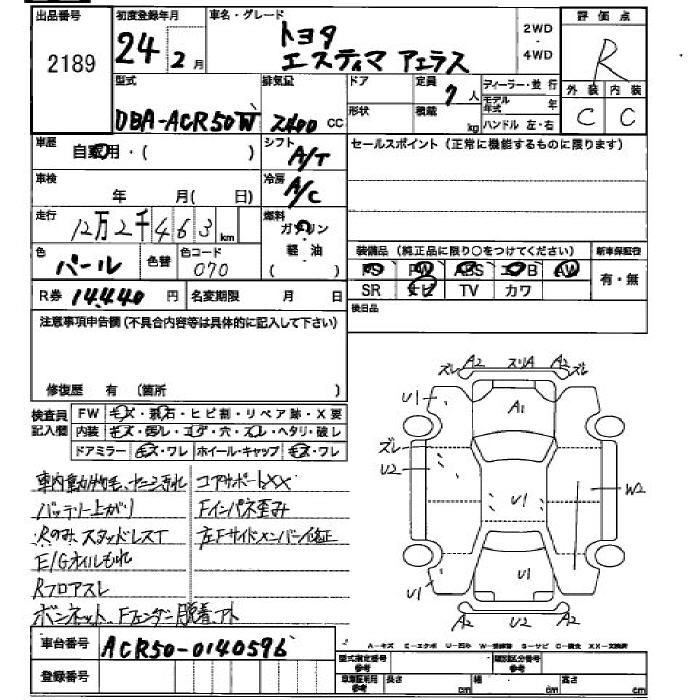 出品番号 初度登録年月 車名・グレード 評価点
2189 24年 2月 トヨタ エスティマ アエラス 2WD・4WD R
外装 内装
C C
型式 排気量 ドア 定員 ディーラー・並行
DBA-ACR50W 2400 CC 7人 モデル年式 年
形状 積載 kg ハンドル 左・右
車歴 自家用・( ) シフト A/T セールスポイント(正常に機能するものに限ります)
車検 年 月( 日) 冷房 A/C
走行 12万2千463km 燃料 ガソリン
軽・油
( )
色 パール 色替 色コード 070
装備品(純正品に限り○をつけてください) 新車保証書
PS PW ABS エアB AW 有・無
SR ナビ TV カワ
R券 14,440円 名変期限 月 日 後日品
注意事項申告欄(不具合内容等は具体的に記入して下さい)
修復歴 有(箇所 )
検査員記入欄 FW キズ・飛石・ヒビ割・リペア跡・X要
内装 キズ・汚レ・コゲ・穴・スレ・ヘタリ・破レ
ドアミラー キズ・ワレ ホイール・キャップ キズ・ワレ
車内動物毛、ヤニ汚れ コアサポートXX
バッテリー上がり Fインパネ歪み
Rのみスタッドレスト 左Fサイドメンバー修正
E/Gオイルもれ
Rフロアスレ
ボンネット、Fフェンダー脱着アト
ズレ A2 スリA A2 ズレ
U1 A1
ズレ
U2 U1 W2
U1 U1
A2 A2
車台番号 ACR50-0140596
登録番号
A-キズ E-エクボ U-凹み W-補修跡 S-サビ C-腐食 XX-交換済
型式指定番号 参考 類別区分番号 参考
車庫証明用 参考 長さ cm 幅 cm 高さ cm